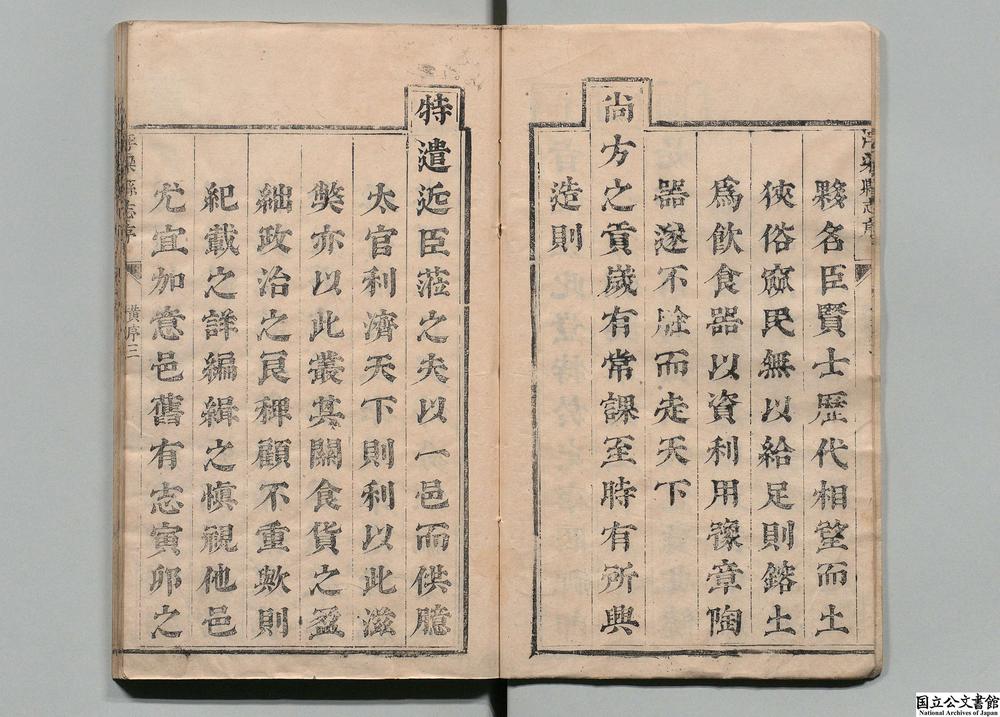 夥名臣賢士歷代相望而土
狹俗窳民無以給足則鎔土
爲飲食器以資利用豫章陶
器遂不脛而走天下
尚方之貢歲有常課至時有所興
造則
特遣近臣蒞之夫以一邑而供臆
太官利濟天下則利以此滋
獘亦以此叢其關食貨之盈
絀政治之良稗顧不重歟則
紀載之詳編緝之愼視他邑
尤宜加意邑舊有志寅卯之
浮梁縣志序
黃序三
国立公文書館
National Archives of Japan